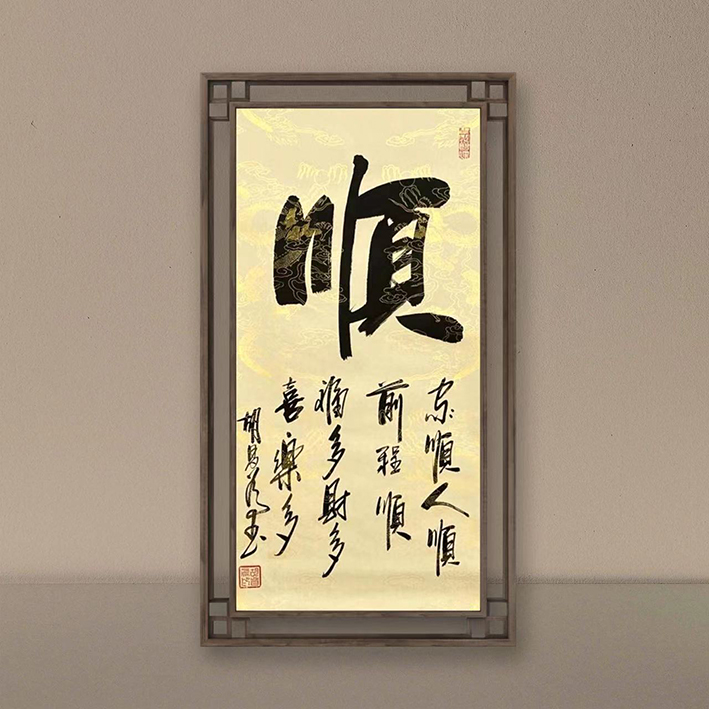 順
家順人順
前程順
福多財多
喜樂多